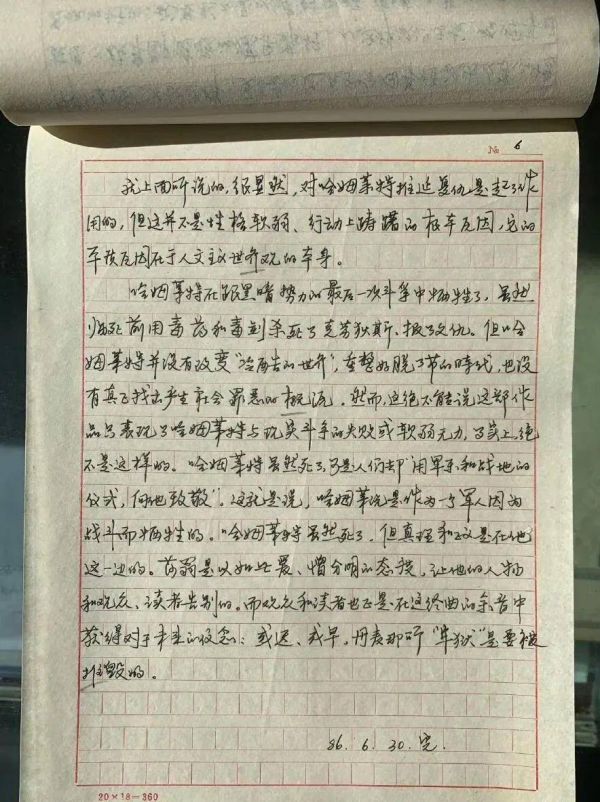 № 6
我上面所说的,很显然,对哈姆莱特推延复仇是起了作
用的,但这并不是性格软弱、行动上踌躇的根本原因,它的
本质原因在于人文主义世界观的本身。
哈姆莱特在跟黑暗势力的最后一次斗争中牺牲了,虽然
临死前用毒药和毒剑杀死了克劳狄斯、报了父仇。但哈
姆莱特并没有改变"冷酷的世界",重整好脱了节的时代,也没
有真正找出产生社会罪恶的根源。然而,这绝不能说这部作
品只表现了哈姆莱特与现实斗争的失败或软弱无力,事实上绝
不是这样的。哈姆莱特虽然死了,可是人们却"用军乐和战地的
仪式,向他致敬"。这就是说,哈姆莱特是作为一个军人因为
战斗而牺牲的。哈姆莱特虽然死了,但真理和正义是在他
这一边的。莎翁是以如此爱、憎分明的态度,让他的人物
和观众、读者告别的。而观众和读者也正是在这终曲的余音中
获得对于未来的信念:或迟、或早,丹麦那所"牢狱"是要被
摧毁的。
86.6.30.完.
20×18=360